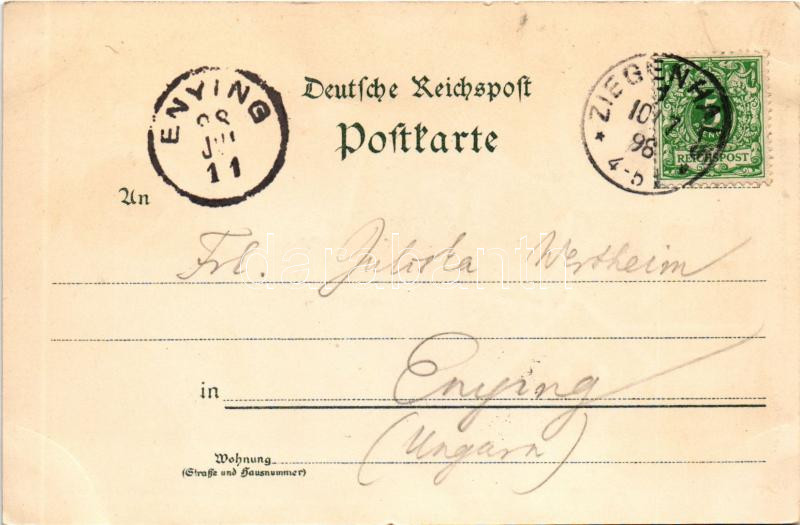 Deutsche Reichspost
Postkarte
ENYING
98
JUL
11
ZIEGENHALS
10/7
98
4-5
5
REICHSPOST
An
Frl. Juliska Wertheim
darabanth
in Enying
(Ungarn)
Wohnung
(Straße und Hausnummer)